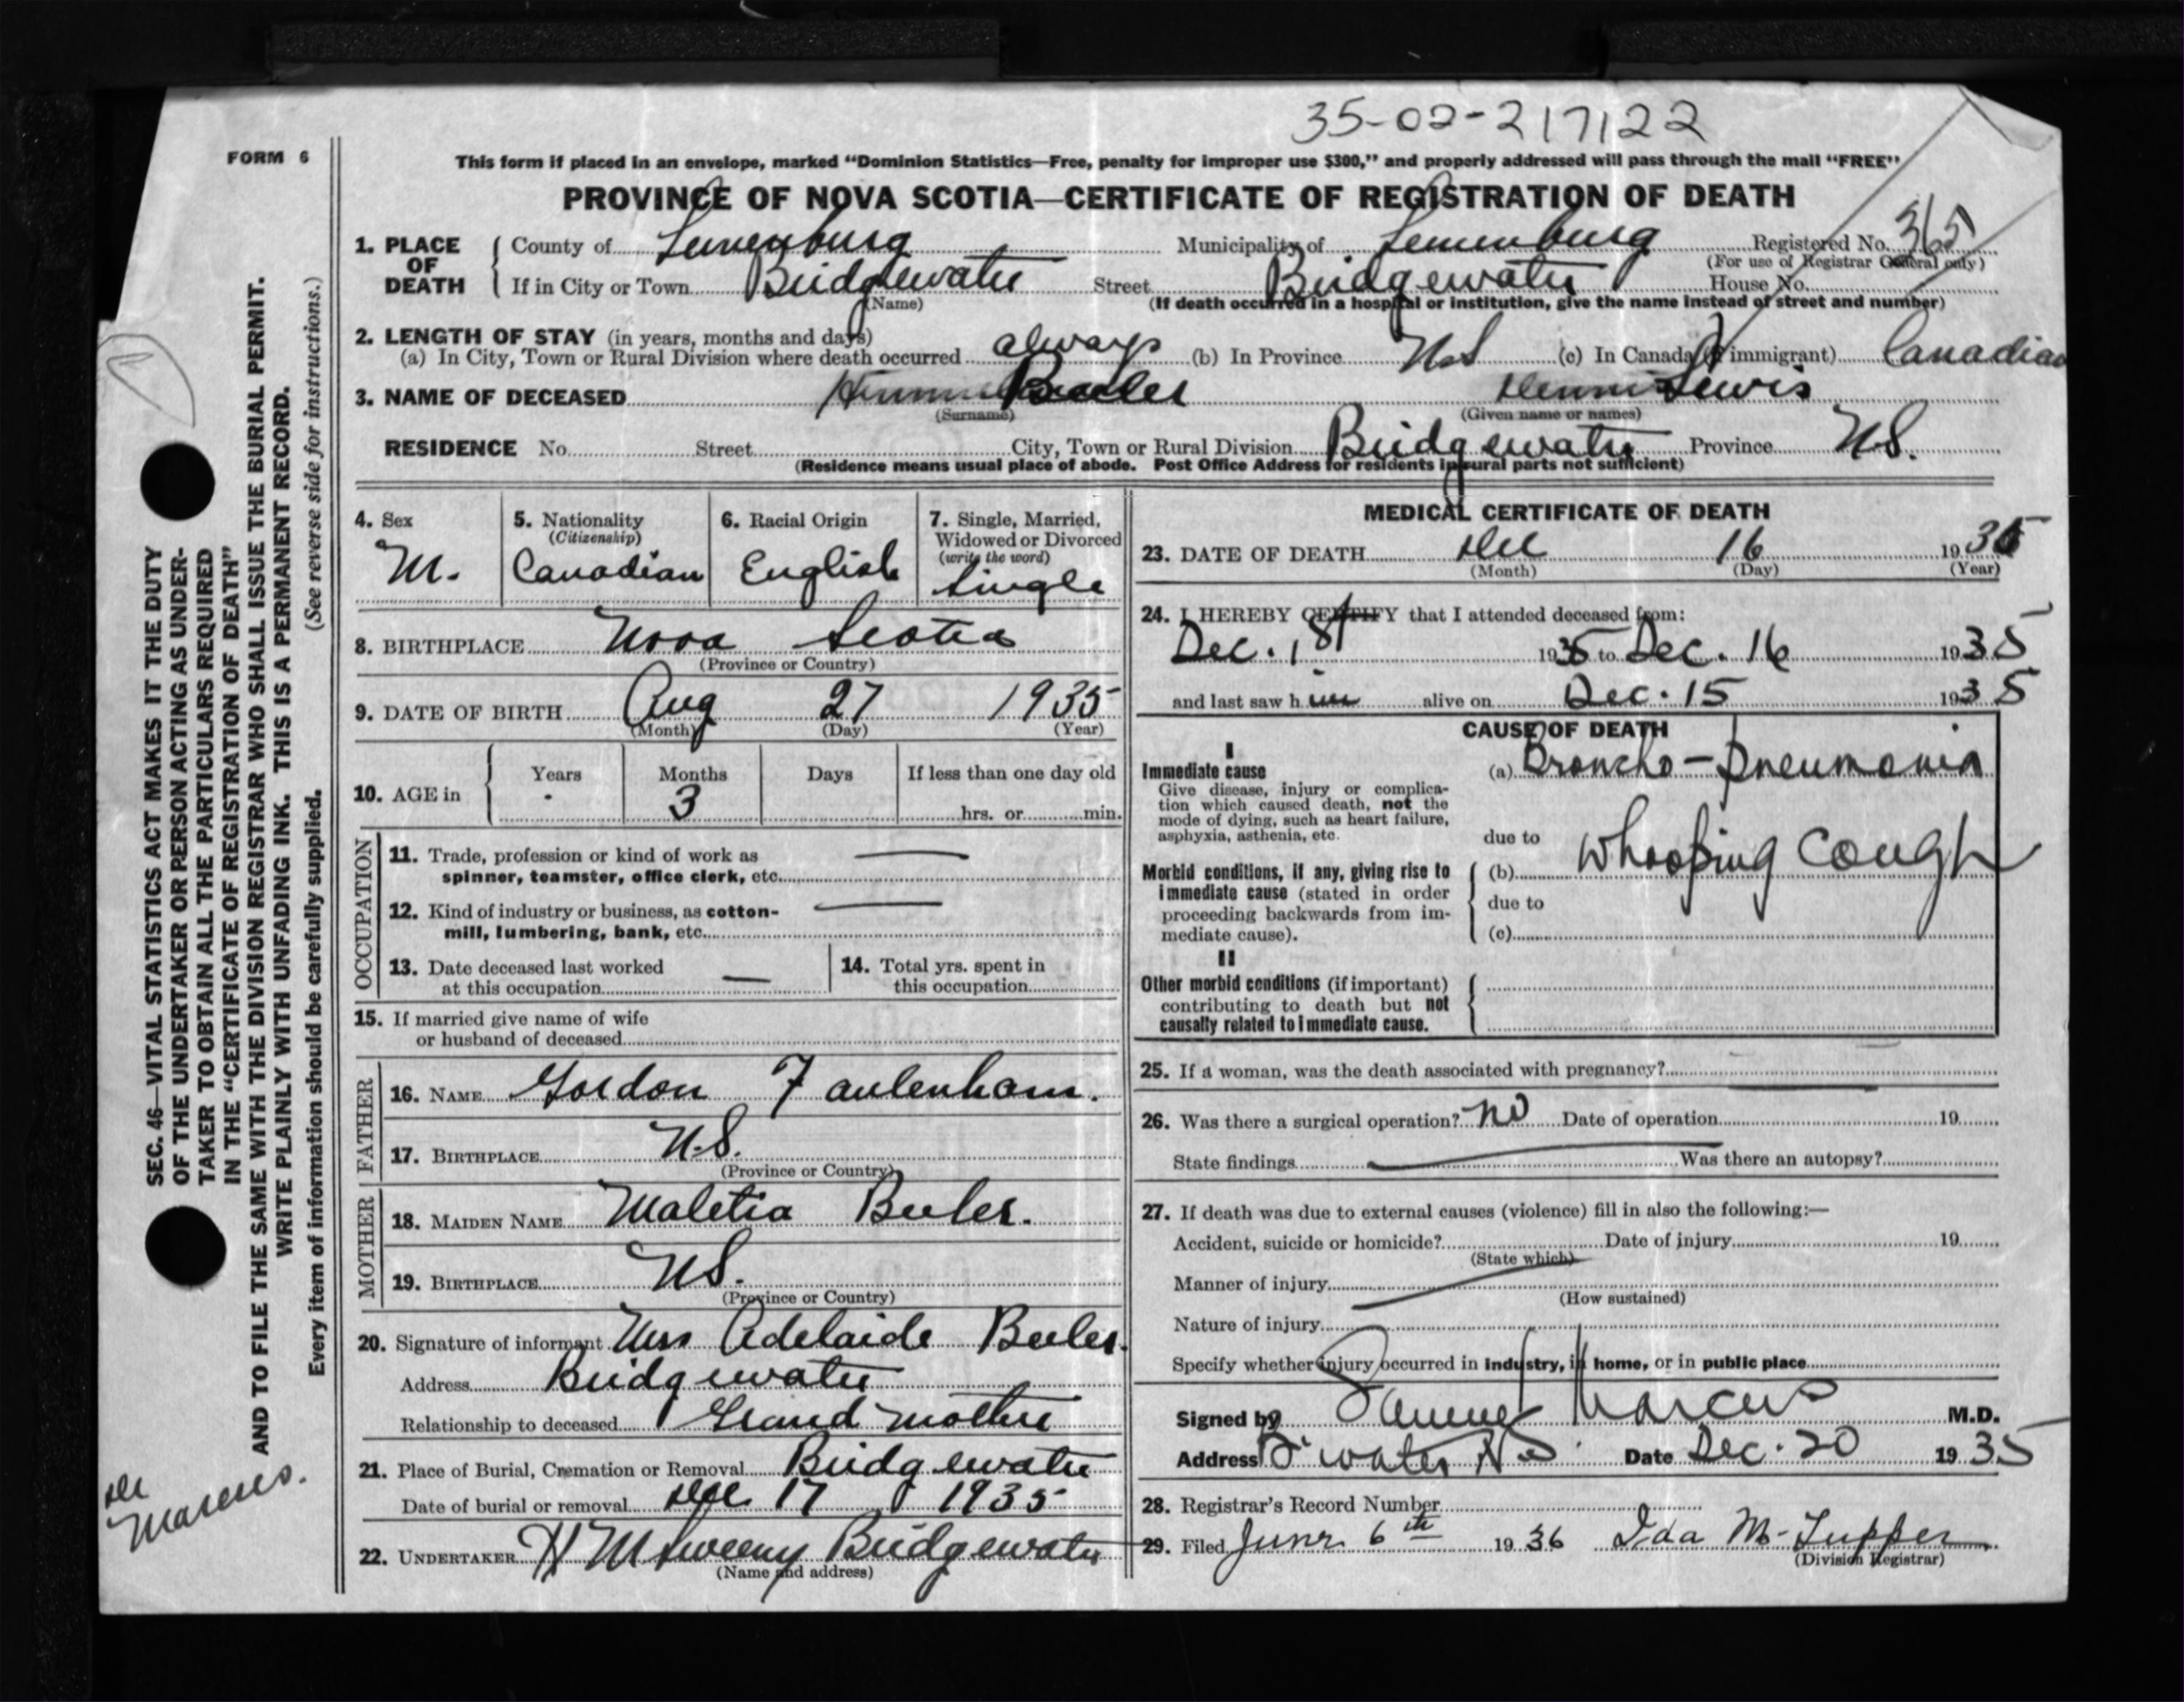 35-02-217122
FORM 6
This form if placed in an envelope, marked "Dominion Statistics—Free, penalty for improper use $300," and properly addressed will pass through the mail "FREE"
PROVINCE OF NOVA SCOTIA—CERTIFICATE OF REGISTRATION OF DEATH
1. PLACE OF DEATH County of Lunenburg Municipality of Lunenburg Registered No. 365
(For use of Registrar General only)
If in City or Town Bridgewater Street Bridgewater House No.
(Name) (If death occurred in a hospital or institution, give the name instead of street and number)
2. LENGTH OF STAY (in years, months and days)
(a) In City, Town or Rural Division where death occurred always (b) In Province NS (c) In Canada (if immigrant) Canadian
3. NAME OF DECEASED Beeler Lewis
(Surname) (Given name or names)
RESIDENCE No. Street City, Town or Rural Division Bridgewater Province NS.
(Residence means usual place of abode. Post Office Address for residents in rural parts not sufficient)
4. Sex M.
5. Nationality (Citizenship) Canadian
6. Racial Origin English
7. Single, Married, Widowed or Divorced (write the word) Single
8. BIRTHPLACE Nova Scotia
(Province or Country)
9. DATE OF BIRTH Aug 27 1935
(Month) (Day) (Year)
10. AGE in Years Months Days If less than one day old
3 hrs. or min.
OCCUPATION
11. Trade, profession or kind of work as
spinner, teamster, office clerk, etc. —
12. Kind of industry or business, as cotton-
mill, lumbering, bank, etc. —
13. Date deceased last worked
at this occupation —
14. Total yrs. spent in
this occupation
15. If married give name of wife
or husband of deceased
FATHER
16. NAME Gordon Faulenham.
17. BIRTHPLACE N.S.
(Province or Country)
MOTHER
18. MAIDEN NAME Maletia Beeler.
19. BIRTHPLACE NS.
(Province or Country)
20. Signature of informant Mrs Adelaide Beeler.
Address Bridgewater
Relationship to deceased Grand mother
21. Place of Burial, Cremation or Removal Bridgewater
Date of burial or removal Dec 17 1935
22. UNDERTAKER H M Sweeny Bridgewater
(Name and address)
MEDICAL CERTIFICATE OF DEATH
23. DATE OF DEATH Dec 16 1935
(Month) (Day) (Year)
24. I HEREBY CERTIFY that I attended deceased from:
Dec. 1st 1935 to Dec. 16 1935
and last saw him alive on Dec. 15 1935
CAUSE OF DEATH
I
Immediate cause (a) Broncho-pneumonia
Give disease, injury or complica-
tion which caused death, not the
mode of dying, such as heart failure,
asphyxia, asthenia, etc.
due to
Morbid conditions, if any, giving rise to
immediate cause (stated in order
proceeding backwards from im-
mediate cause).
(b) Whooping Cough
due to
(c)
II
Other morbid conditions (if important)
contributing to death but not
causally related to immediate cause.
25. If a woman, was the death associated with pregnancy?
26. Was there a surgical operation? no Date of operation 19
State findings Was there an autopsy?
27. If death was due to external causes (violence) fill in also the following:—
Accident, suicide or homicide? Date of injury 19
(State which)
Manner of injury
(How sustained)
Nature of injury
Specify whether injury occurred in industry, in home, or in public place
Signed by Samuel Marcus M.D.
Address B'water N.S. Date Dec. 20 1935
28. Registrar's Record Number
29. Filed June 6th 1936 Ida M. Tupper
(Division Registrar)
SEC. 46—VITAL STATISTICS ACT MAKES IT THE DUTY
OF THE UNDERTAKER OR PERSON ACTING AS UNDER-
TAKER TO OBTAIN ALL THE PARTICULARS REQUIRED
IN THE "CERTIFICATE OF REGISTRATION OF DEATH"
AND TO FILE THE SAME WITH THE DIVISION REGISTRAR WHO SHALL ISSUE THE BURIAL PERMIT.
WRITE PLAINLY WITH UNFADING INK. THIS IS A PERMANENT RECORD.
Every item of information should be carefully supplied. (See reverse side for instructions.)
Marcus.